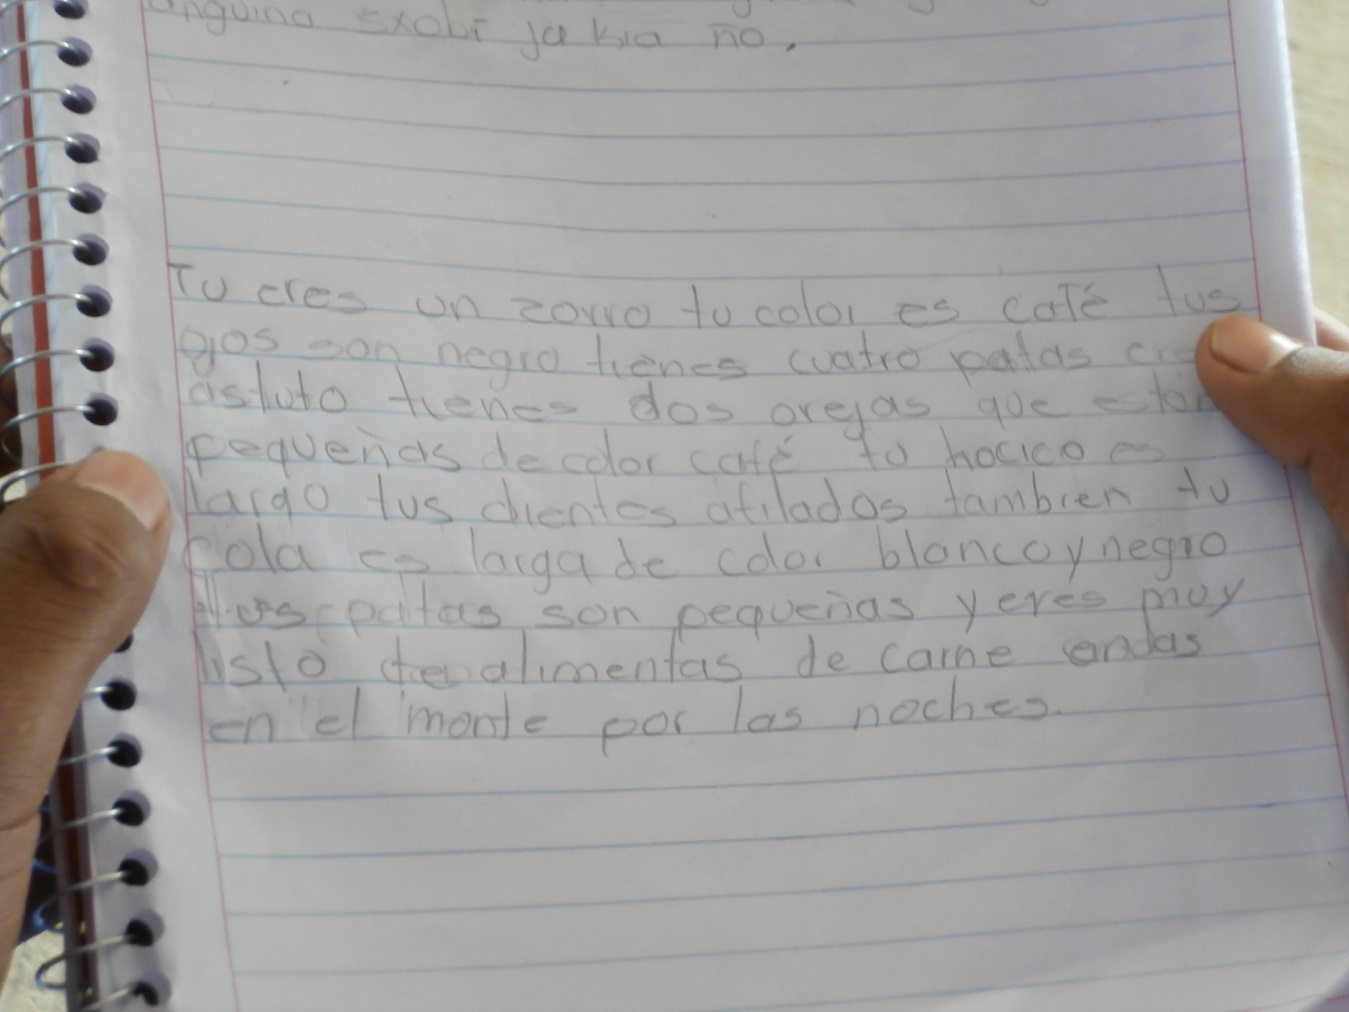 ja kia no.
Tu eres un zorro tu color es café tus
ojos son negro tienes cuatro patas
astuto tienes dos orejas que están
pequeñas de color café tu hocico es
largo tus dientes afilados tambien tu
cola es larga de color blanco y negro
tus patas son pequeñas y eres muy
listo te alimentas de carne andas
en el monte por las noches.